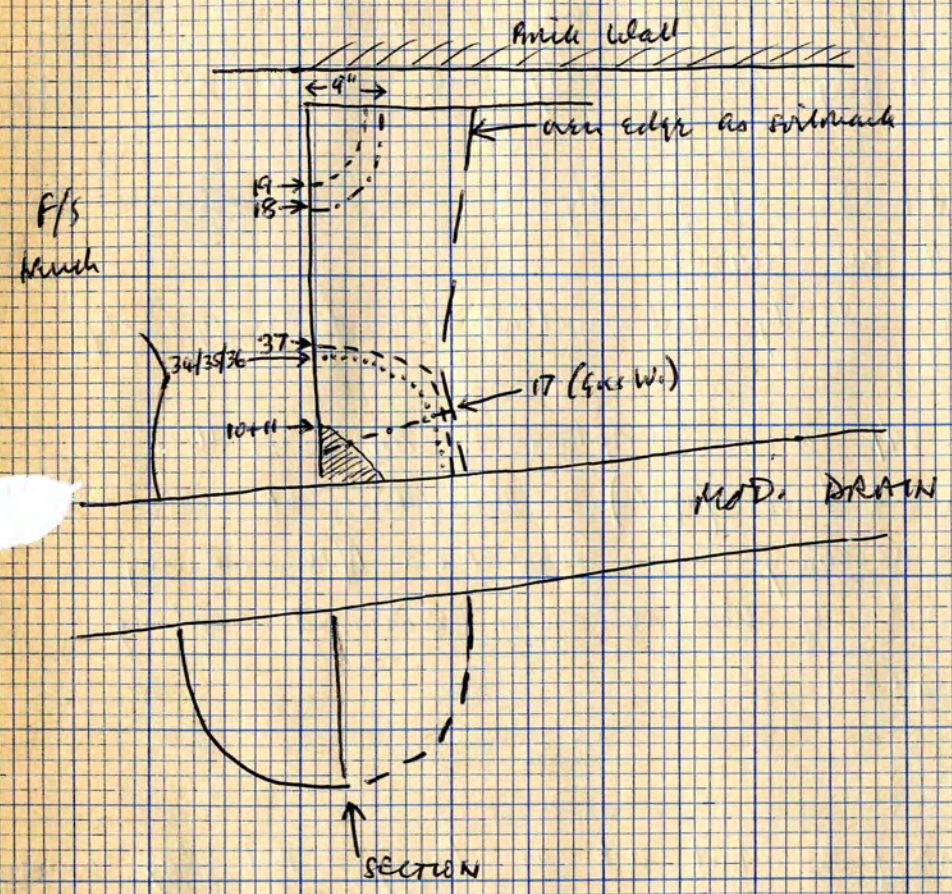 Brick Wall
9"
oven edge as soilmark
19
18
F/S
trench
37
34/35/36
17 (Gas W.)
10+11
MOD. DRAIN
SECTION